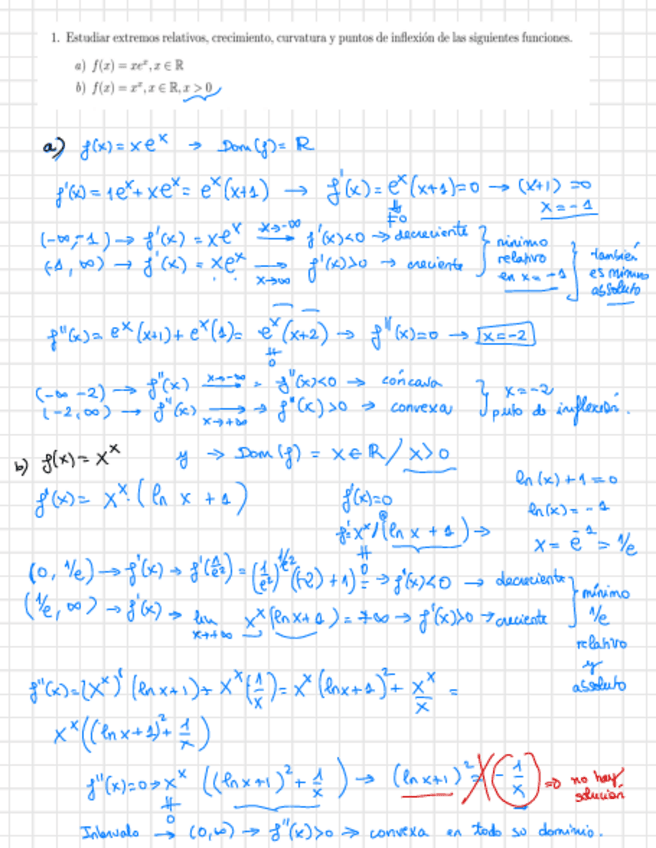 1. Estudiar extremos relativos, crecimiento, curvatura y puntos de inflexión de las siguientes funciones.
a) f(x) = xeˣ, x ∈ ℝ
b) f(x) = xˣ, x ∈ ℝ, x > 0
a) f(x) = xeˣ → Dom(f) = ℝ
f'(x) = 1eˣ + xeˣ = eˣ(x+1) → f'(x) = eˣ(x+1) = 0 → (x+1) = 0
≠0
x = -1
(-∞, -1) → f'(x) = xeˣ x→-∞ → f'(x)<0 → decreciente
(-1, ∞) → f'(x) = xeˣ x→∞ → f'(x)>0 → creciente
} mínimo relativo en x = -1
} también es mínimo absoluto
f''(x) = eˣ(x+1) + eˣ(1) = eˣ(x+2) → f''(x)=0 → x=-2
≠0
(-∞ -2) → f''(x) x→-∞ → f''(x)<0 → cóncava
(-2, ∞) → f''(x) x→+∞ → f''(x)>0 → convexa
} x=-2 punto de inflexión.
b) f(x) = xˣ y → Dom(f) = x∈ℝ / x>0
f'(x) = xˣ·(ln x + 1)
f'(x)=0
xˣ (ln x + 1) →
≠0
ln(x)+1=0
ln(x) = -1
x = e⁻¹ = 1/e
(0, 1/e) → f'(x) → f'(1/e²) = (1/e²)^(1/e²) ((-2)+1) → f'(x)<0 → decreciente
(1/e, ∞) → f'(x) → lim x→+∞ xˣ(ln x+1) = +∞ → f'(x)>0 → creciente
} mínimo 1/e relativo y absoluto
f''(x) = (xˣ)' (ln x+1) + xˣ(1/x) = xˣ(ln x+1)² + xˣ/x =
xˣ((ln x+1)² + 1/x)
f''(x)=0 → xˣ ((ln x+1)² + 1/x) → (ln x+1)² = (-1/x) ⇒ no hay solución
≠0
Intervalo → (0,∞) → f''(x)>0 → convexa en todo su dominio.